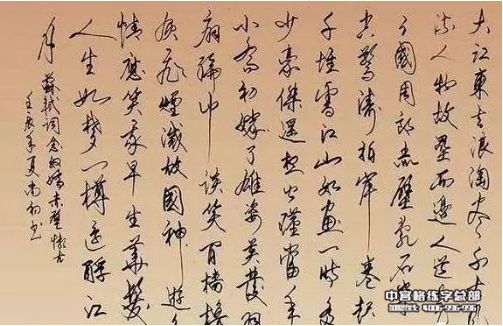 大江東去浪淘盡千古風
流人物故壘西邊人道是
三國周郎赤壁亂石穿
空驚濤拍岸卷起
千堆雪江山如畫一時多
少豪傑遥想公瑾當年
小喬初嫁了雄姿英發羽
扇綸巾談笑間檣櫓
灰飛煙滅故國神遊多
情應笑我早生華髮
人生如夢一樽還酹江
月 蘇軾詞念奴嬌赤壁懷古
壬辰年夏尚初書
中宫格练字总部